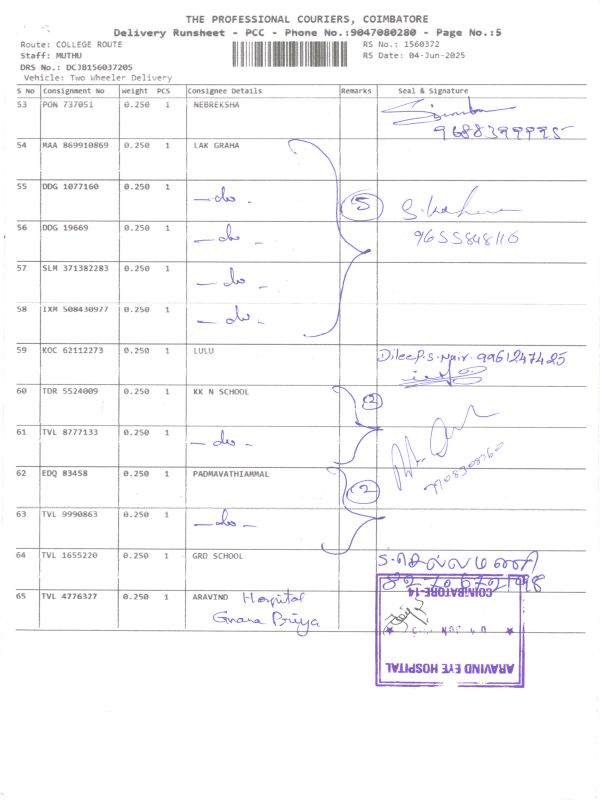 THE PROFESSIONAL COURIERS, COIMBATORE
Delivery Runsheet - PCC - Phone No.:9047080280 - Page No.:5
Route: COLLEGE ROUTE RS No.: 1560372
Staff: MUTHU RS Date: 04-Jun-2025
DRS No.: DCJB156037205
Vehicle: Two Wheeler Delivery
S No Consignment No Weight PCS Consignee Details Remarks Seal & Signature
53 PON 737051 0.250 1 NEBREKSHA
54 MAA 869910869 0.250 1 LAK GRAHA
55 DDG 1077160 0.250 1 -do- 5
56 DDG 19669 0.250 1 -do- 9655848116
57 SLM 371382283 0.250 1 -do-
58 IXM 508430977 0.250 1 -do-
59 KOC 62112273 0.250 1 LULU Dileep.S.Nair. 9961247425
60 TDR 5524009 0.250 1 KK N SCHOOL 2
61 TVL 8777133 0.250 1 -do-
62 EDQ 83458 0.250 1 PADMAVATHIAMMAL 2
63 TVL 9990863 0.250 1 -do-
64 TVL 1655220 0.250 1 GRD SCHOOL ச.செல்லமணி
65 TVL 4776327 0.250 1 ARAVIND Hospital
Gnana Priya
COIMBATORE-14
ARAVIND EYE HOSPITAL